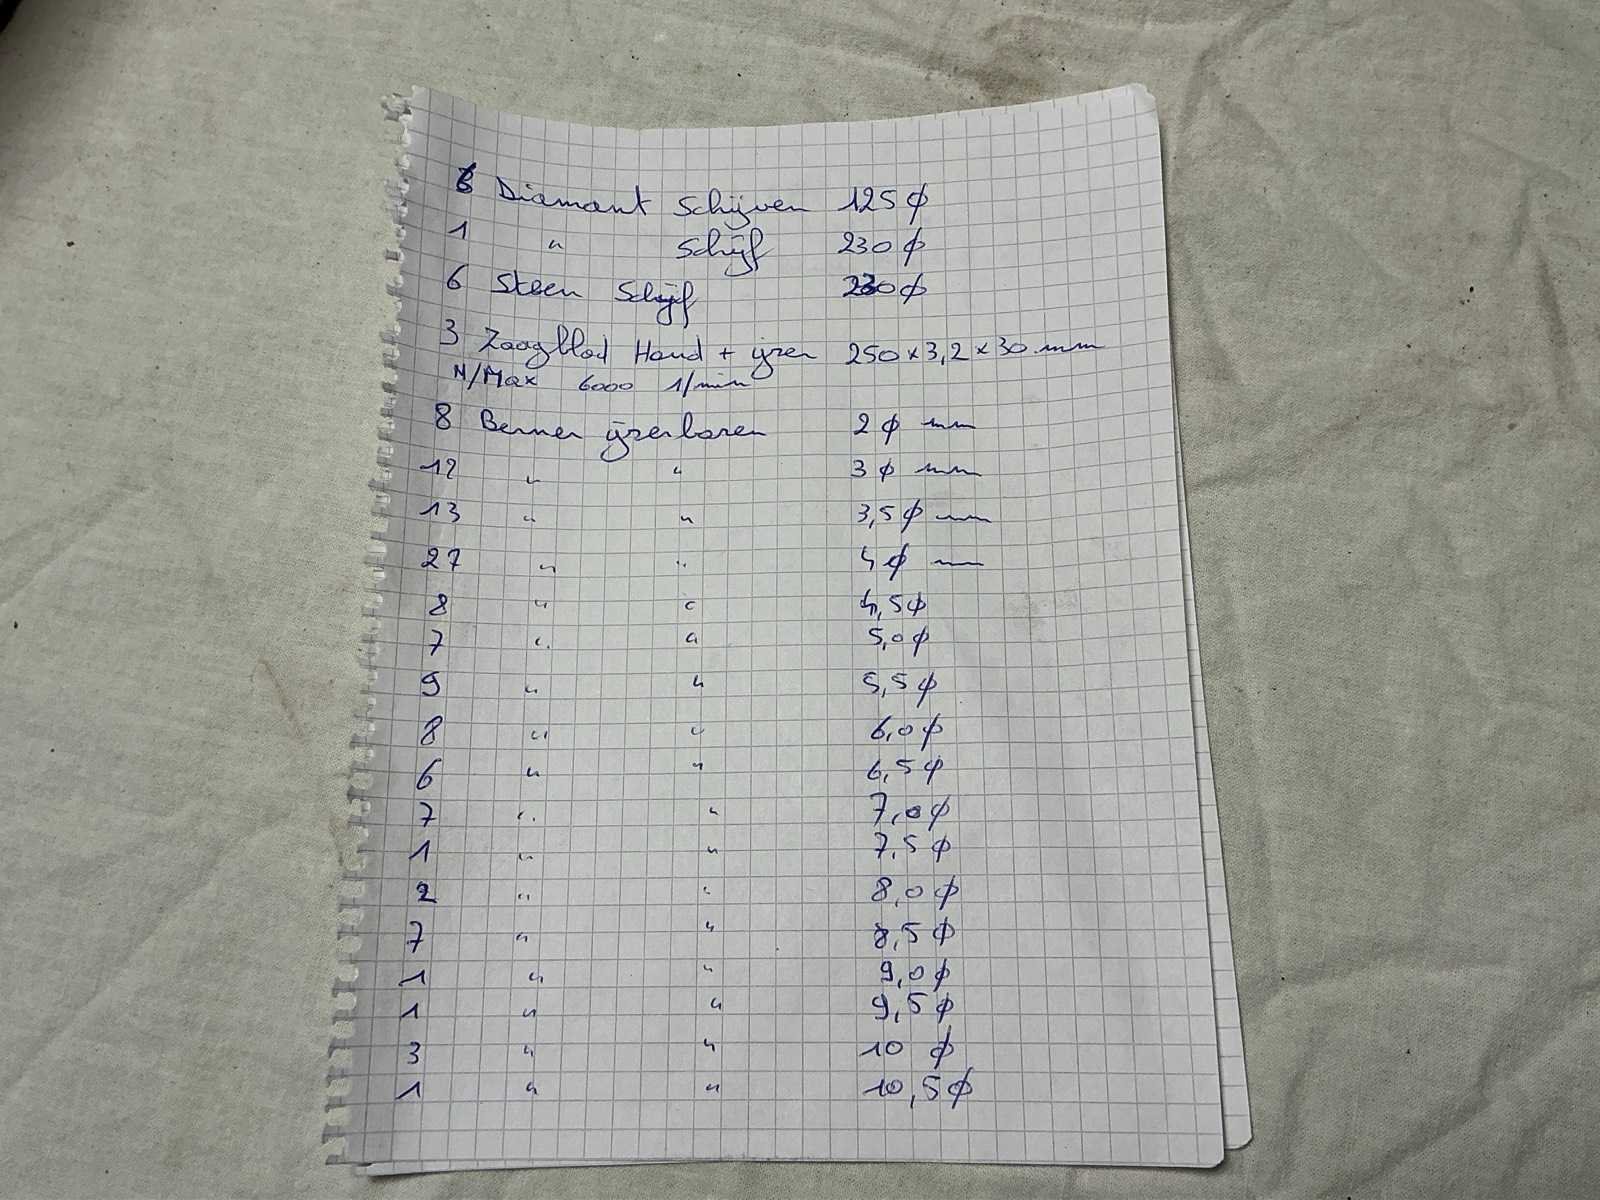 6 Diamant Schijven 125 ϕ
1 " Schijf 230 ϕ
6 Steen Schijf 230 ϕ
3 Zaagblad Houd + ijzer 250 x 3,2 x 30 mm
N/Max 6000 1/min
8 Berner ijzerboren 2 ϕ mm
12 " " 3 ϕ mm
13 " " 3,5 ϕ mm
27 " " 4 ϕ mm
8 " " 4,5 ϕ
7 " " 5,0 ϕ
9 " " 5,5 ϕ
8 " " 6,0 ϕ
6 " " 6,5 ϕ
7 " " 7,0 ϕ
1 " " 7,5 ϕ
2 " " 8,0 ϕ
7 " " 8,5 ϕ
1 " " 9,0 ϕ
1 " " 9,5 ϕ
3 " " 10 ϕ
1 " " 10,5 ϕ